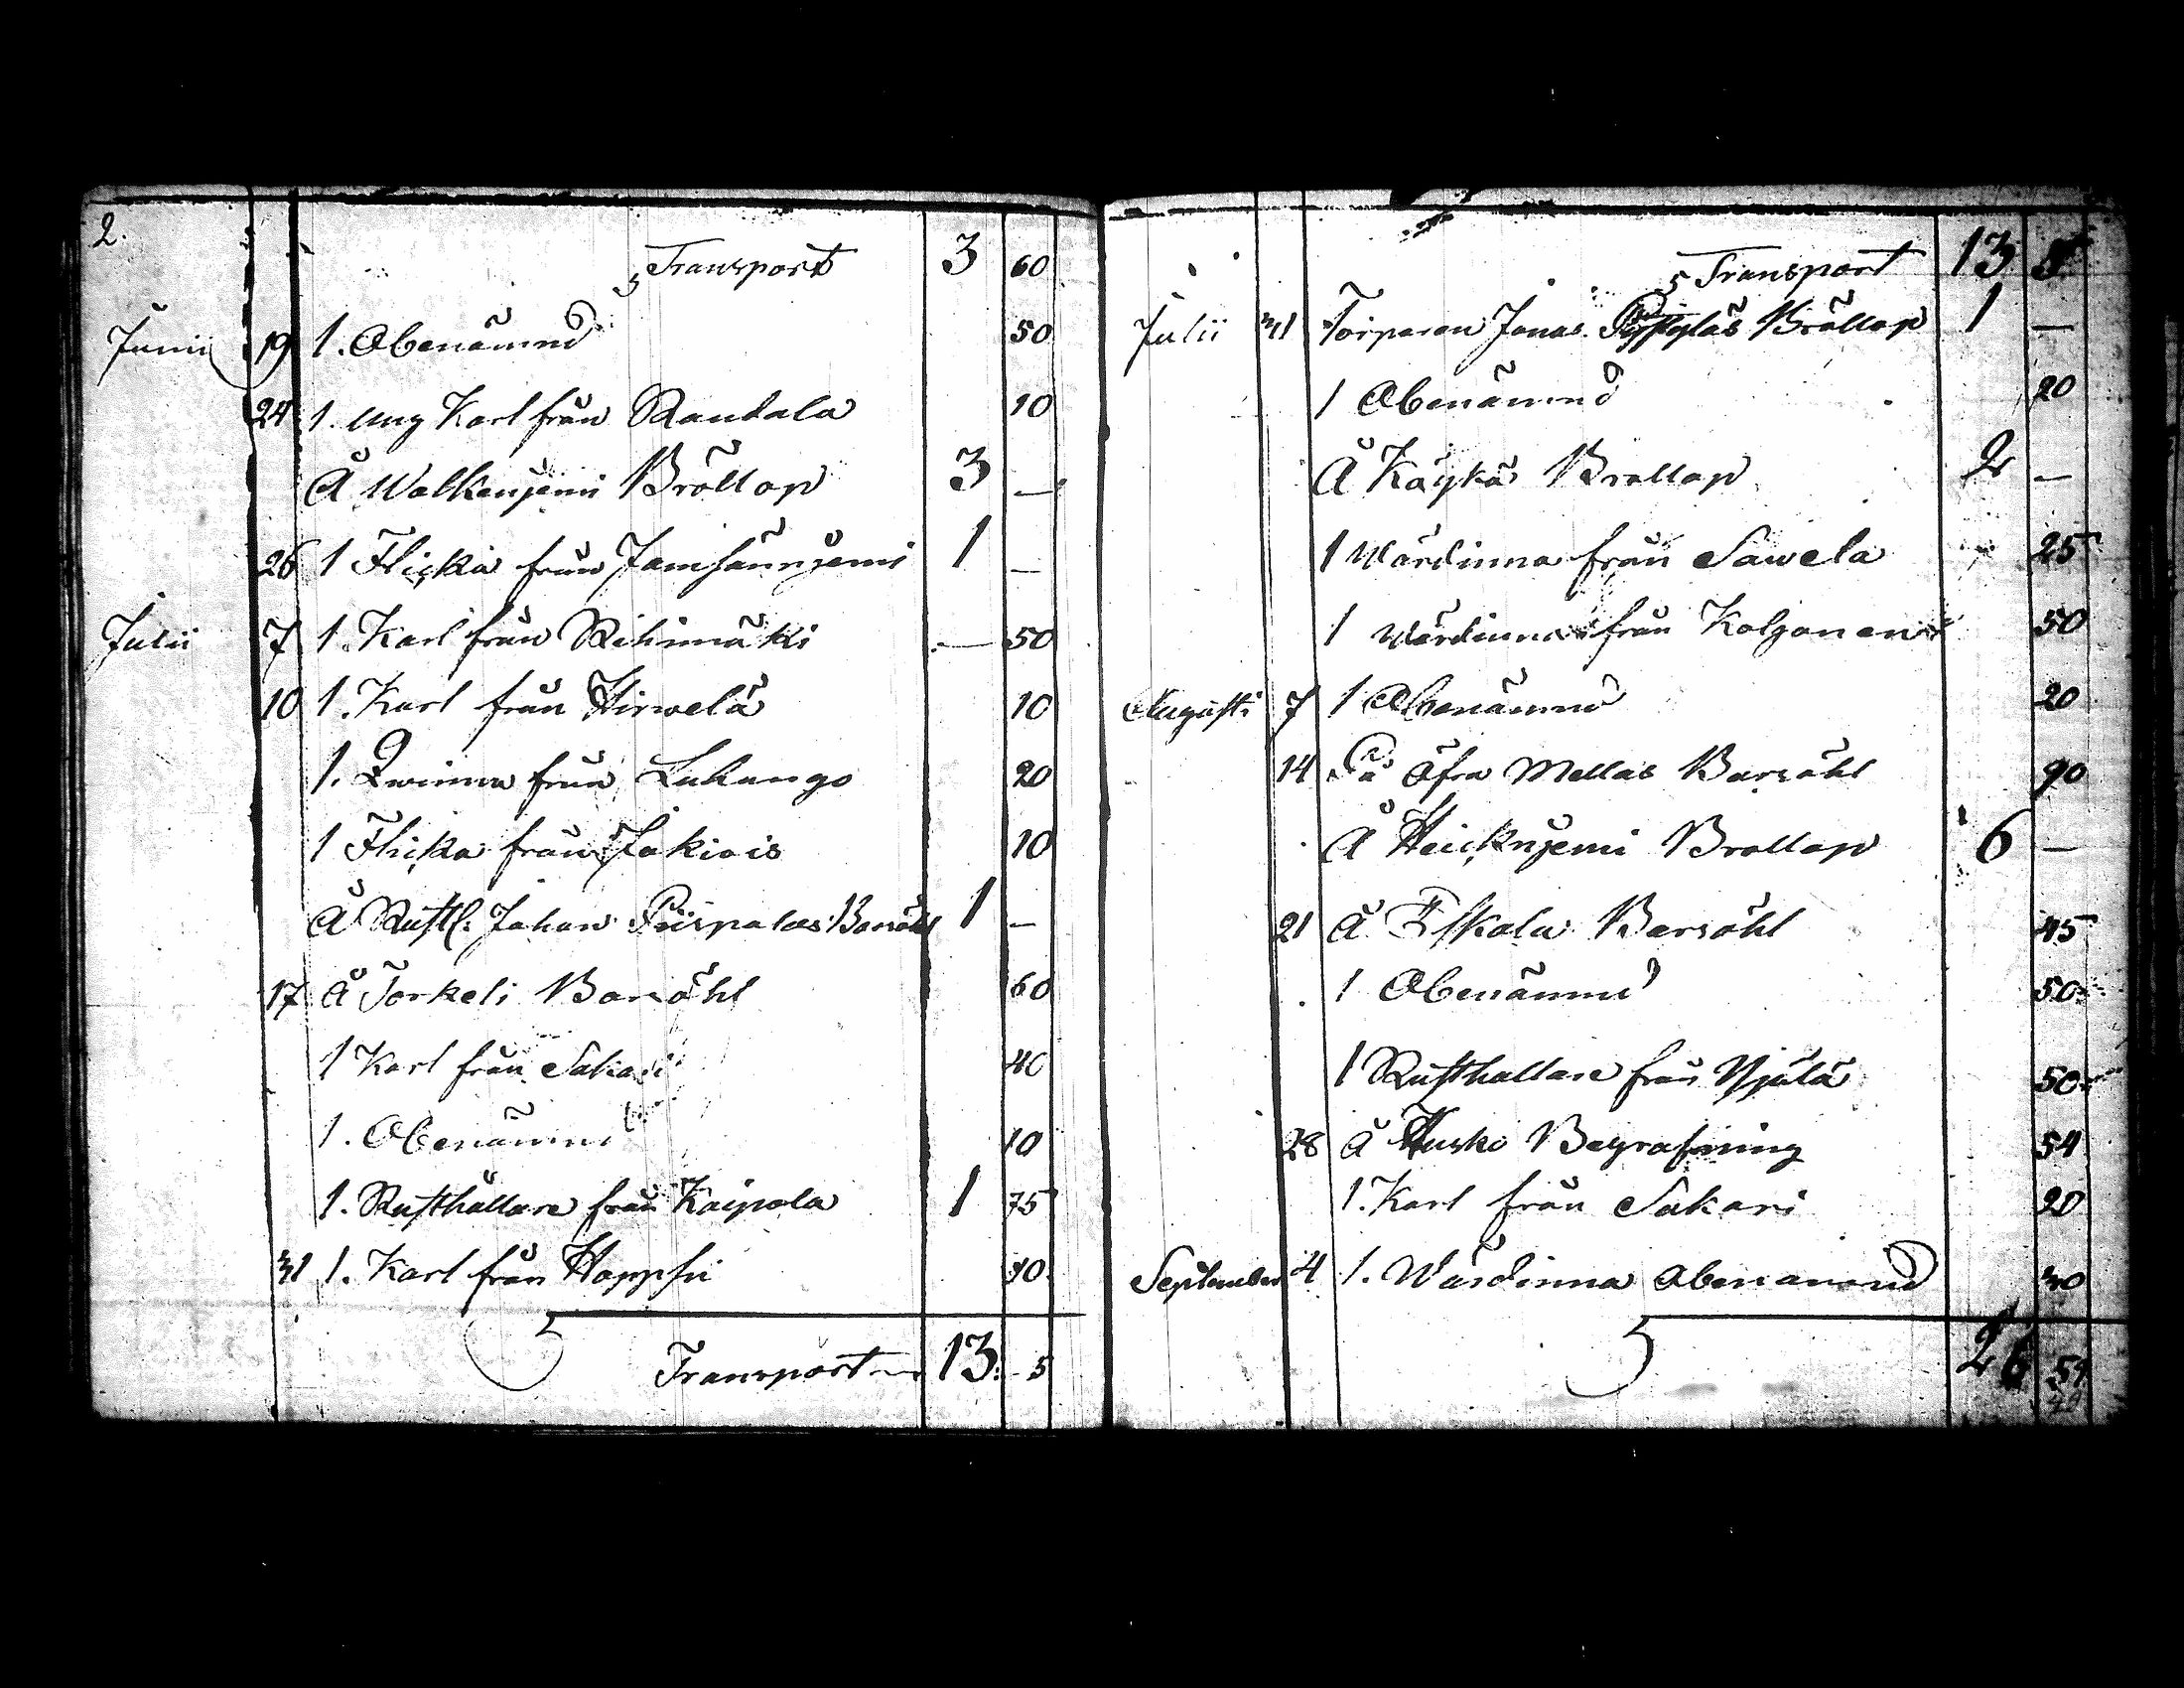 2.
Transport 3 60
Junii 19 1. Obenämnd 50
24 1. ung Karl från Rautala 10
Å Walkenjemi Bröllop 3 —
26 1 Flicka från Jamsänniemi 1 —
Julii 7 1. Karl från Rihimäki — 50
10 1. Karl från Hirwelä 10
1. Qwinna från Lukango 20
1 Flicka från Jokiois 10
Å Rustl: Johan Piispalas Barsöhl 1 —
17 Å Torkeli Barsöhl 60
1 Karl från Sakari 40
1. Obenämnd 10
1. Rusthållare från Kaipola 1 75
31 1. Karl från 10
Transport 13. 5
Transport 13 5
Julii 31 Torparen Jonas Bröllop 1 —
1 Obenämnd 20
Å Käykä Bröllop 2 —
1 Wärdinna från Sawela 25
1 Wärdinna från Koljonen 50
Augusti 7 1 Obenämnd 20
14 På Öfra Mellas Barsöhl 90
Å Heickniemi Bröllop 6 —
21 Å Eskola Barsöhl 45
1 Obenämnd 50
1 Rusthållare från 50
28 Å Husko Begrafning 54
1. Karl från Sakari 20
September 4 1. Wärdinna Obenämnd 30
26 59